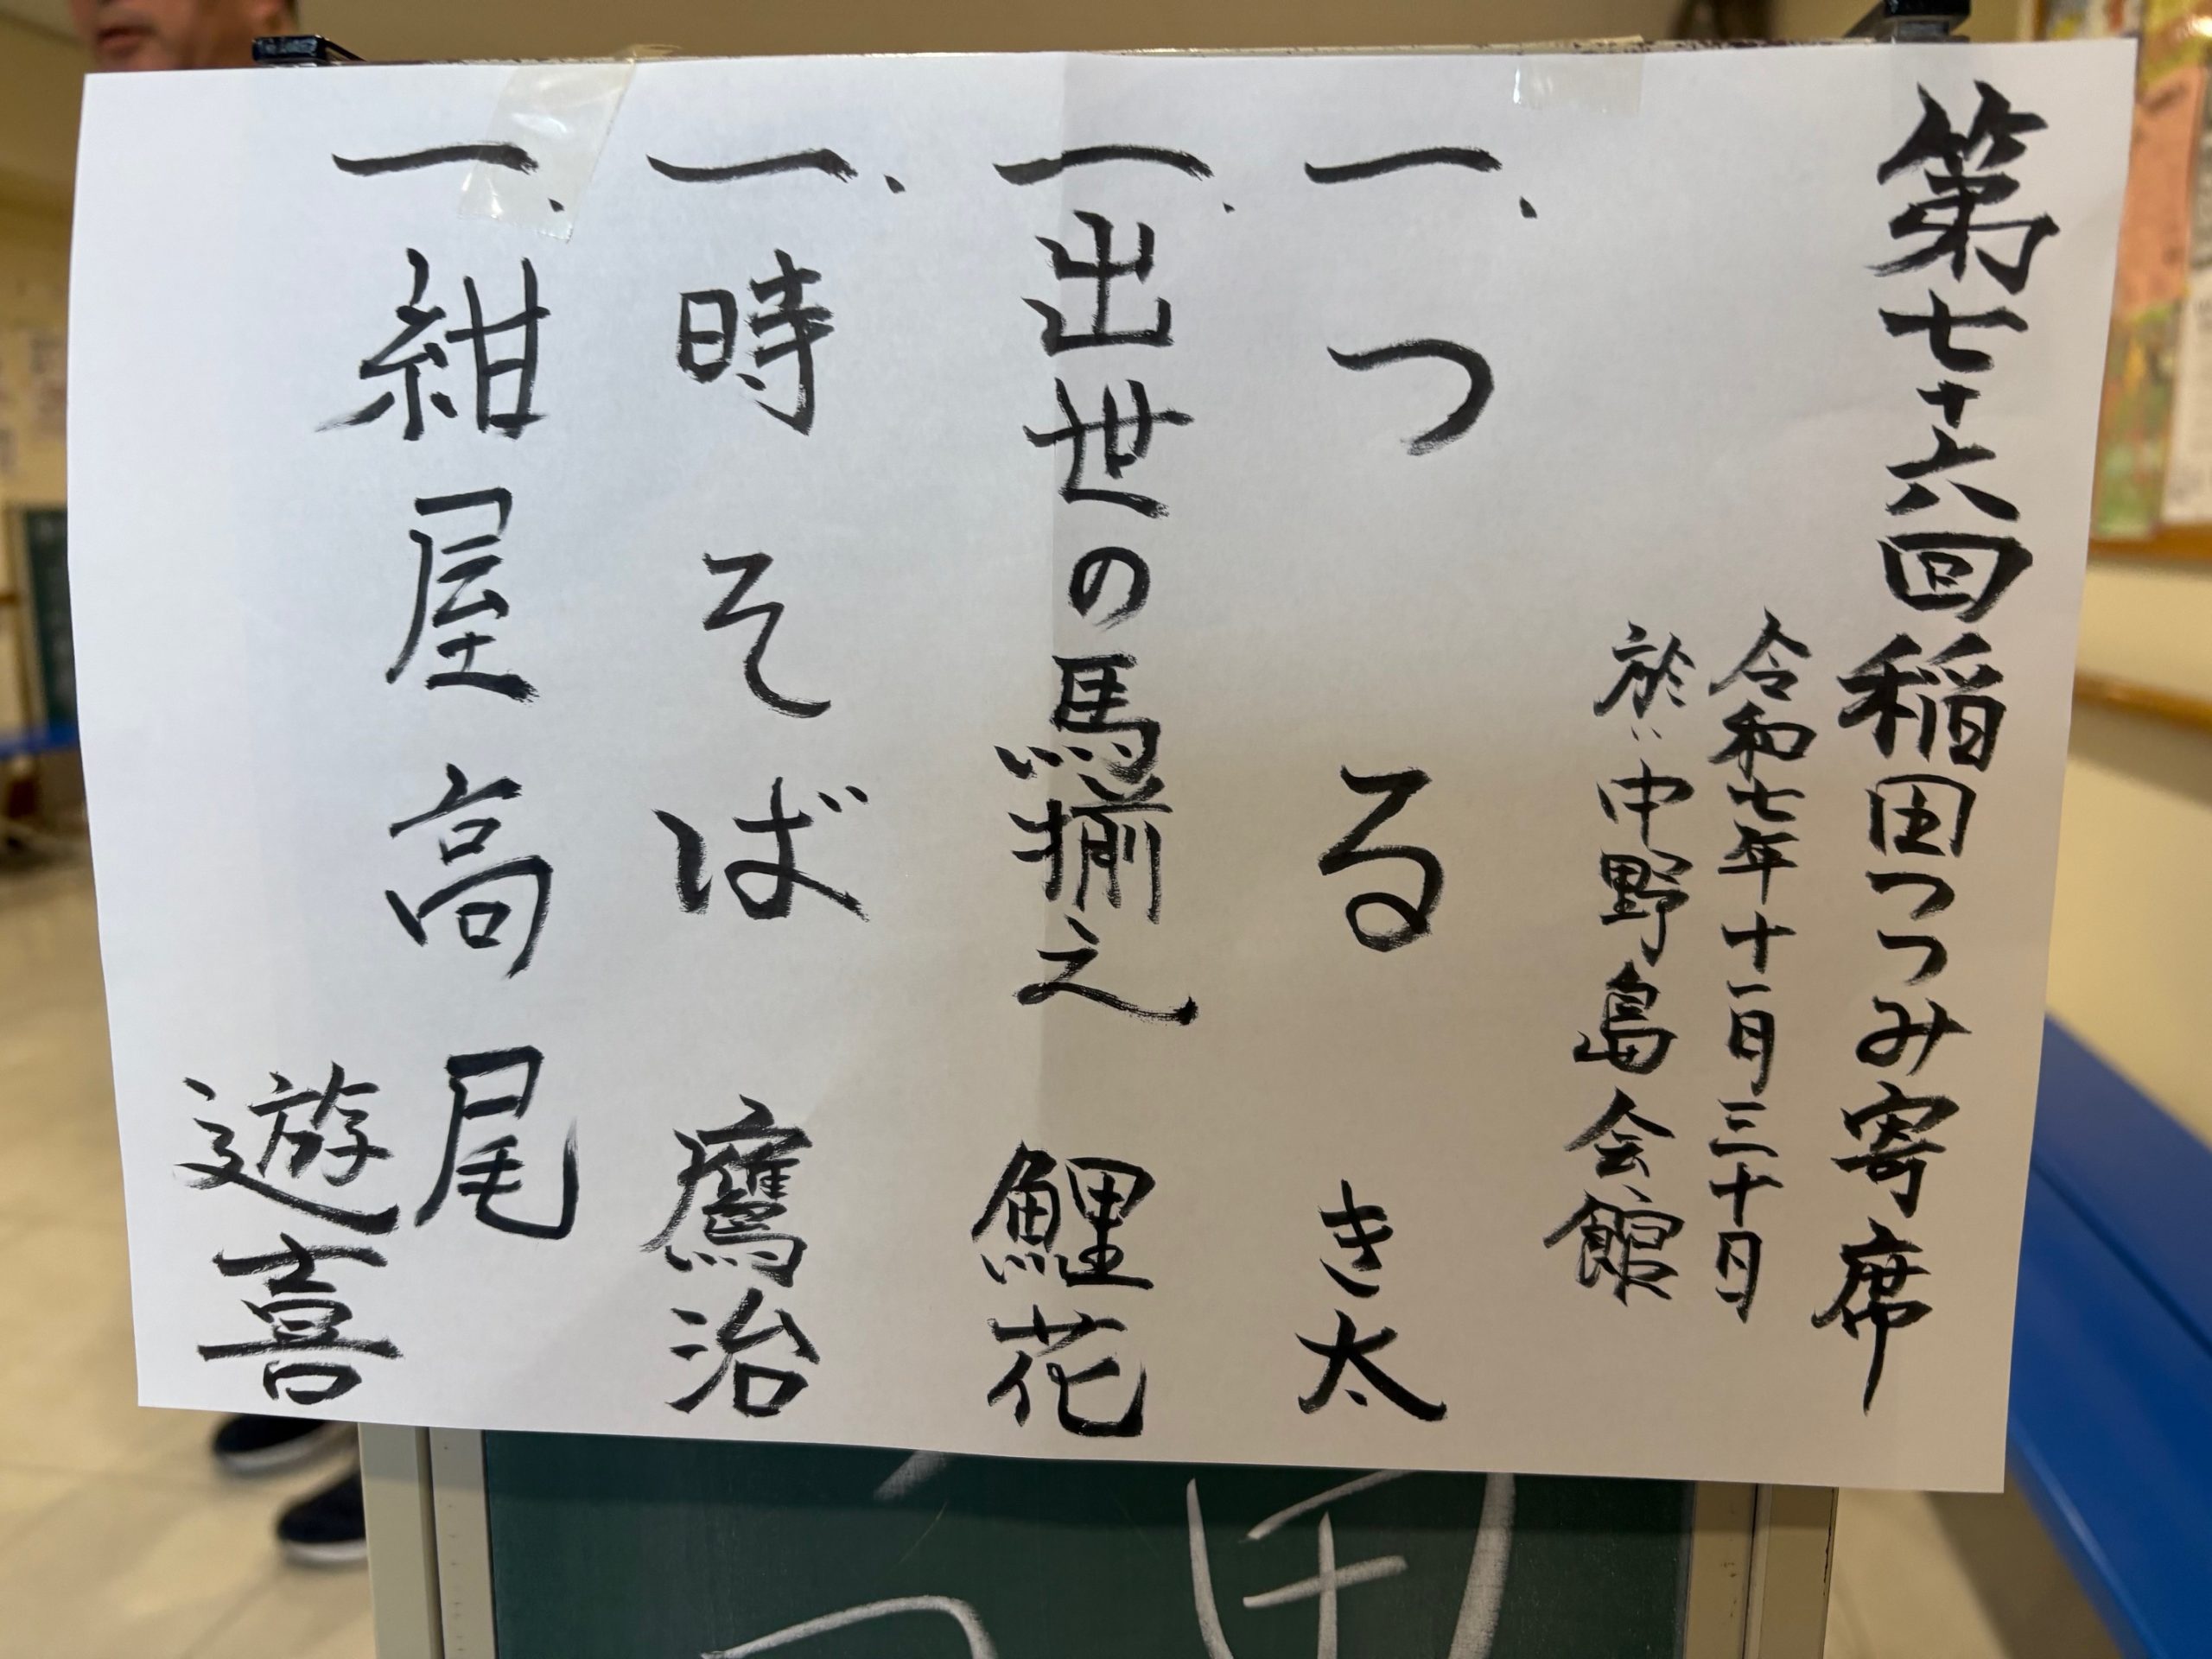 第七十六回稲田つつみ寄席
令和七年十一月三十日
於:中野島会館
一、つる き太
一、出世の馬揃え 鯉花
一、時そば 鷹治
一、紺屋高尾 遊喜